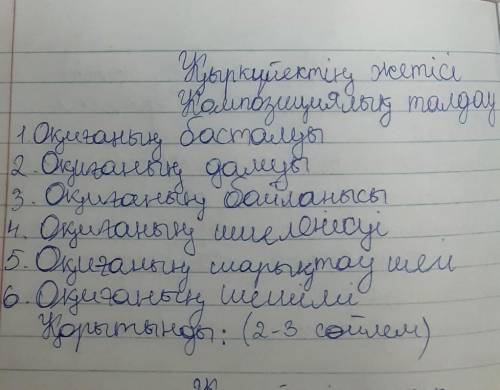 Қыркүйектің жетісі
Композициялық талдау
1. Оқиғаның басталуы
2. Оқиғаның дамуы
3. Оқиғаның байланысы
4. Оқиғаның шиеленісуі
5. Оқиғаның шарықтау шегі
6. Оқиғаның шешімі
Қорытынды: (2-3 сөйлем)